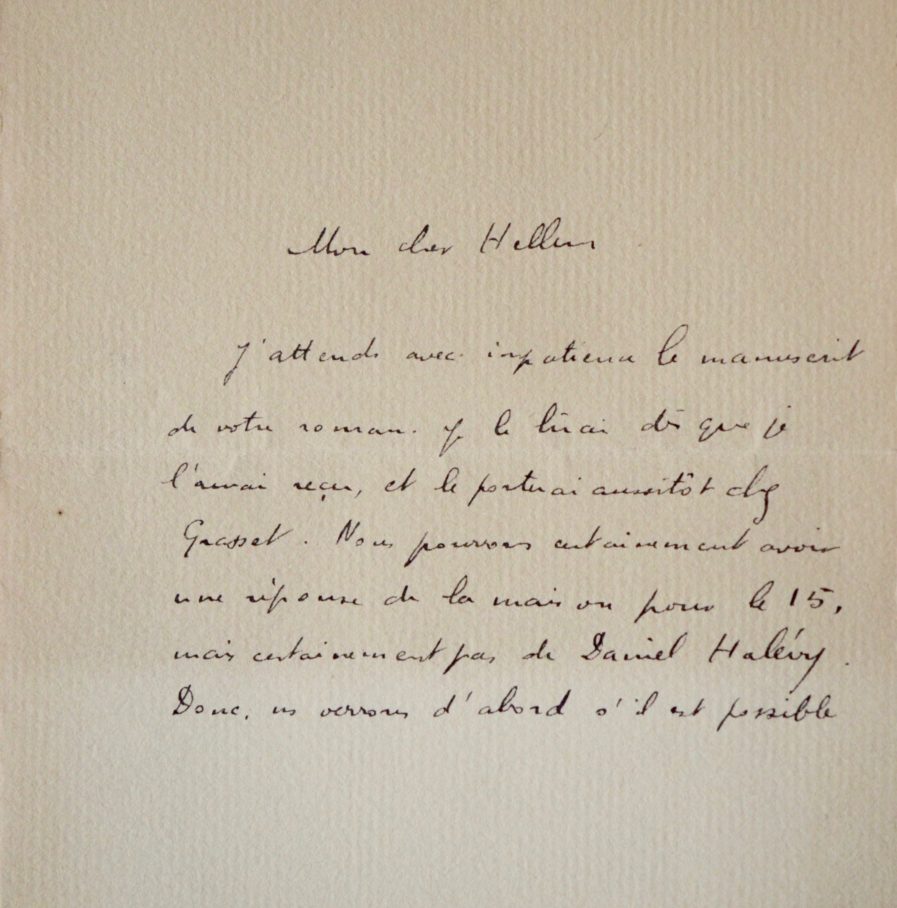 Mon cher Hellens
J'attends avec impatience le manuscrit
de votre roman. Je le lirai dès que je
l'aurai reçu, et le porterai aussitôt chez
Grasset. Nous pourrons certainement avoir
une réponse de la maison pour le 15,
mais certainement pas de Daniel Halévy.
Donc, ns verrons d'abord s'il est possible